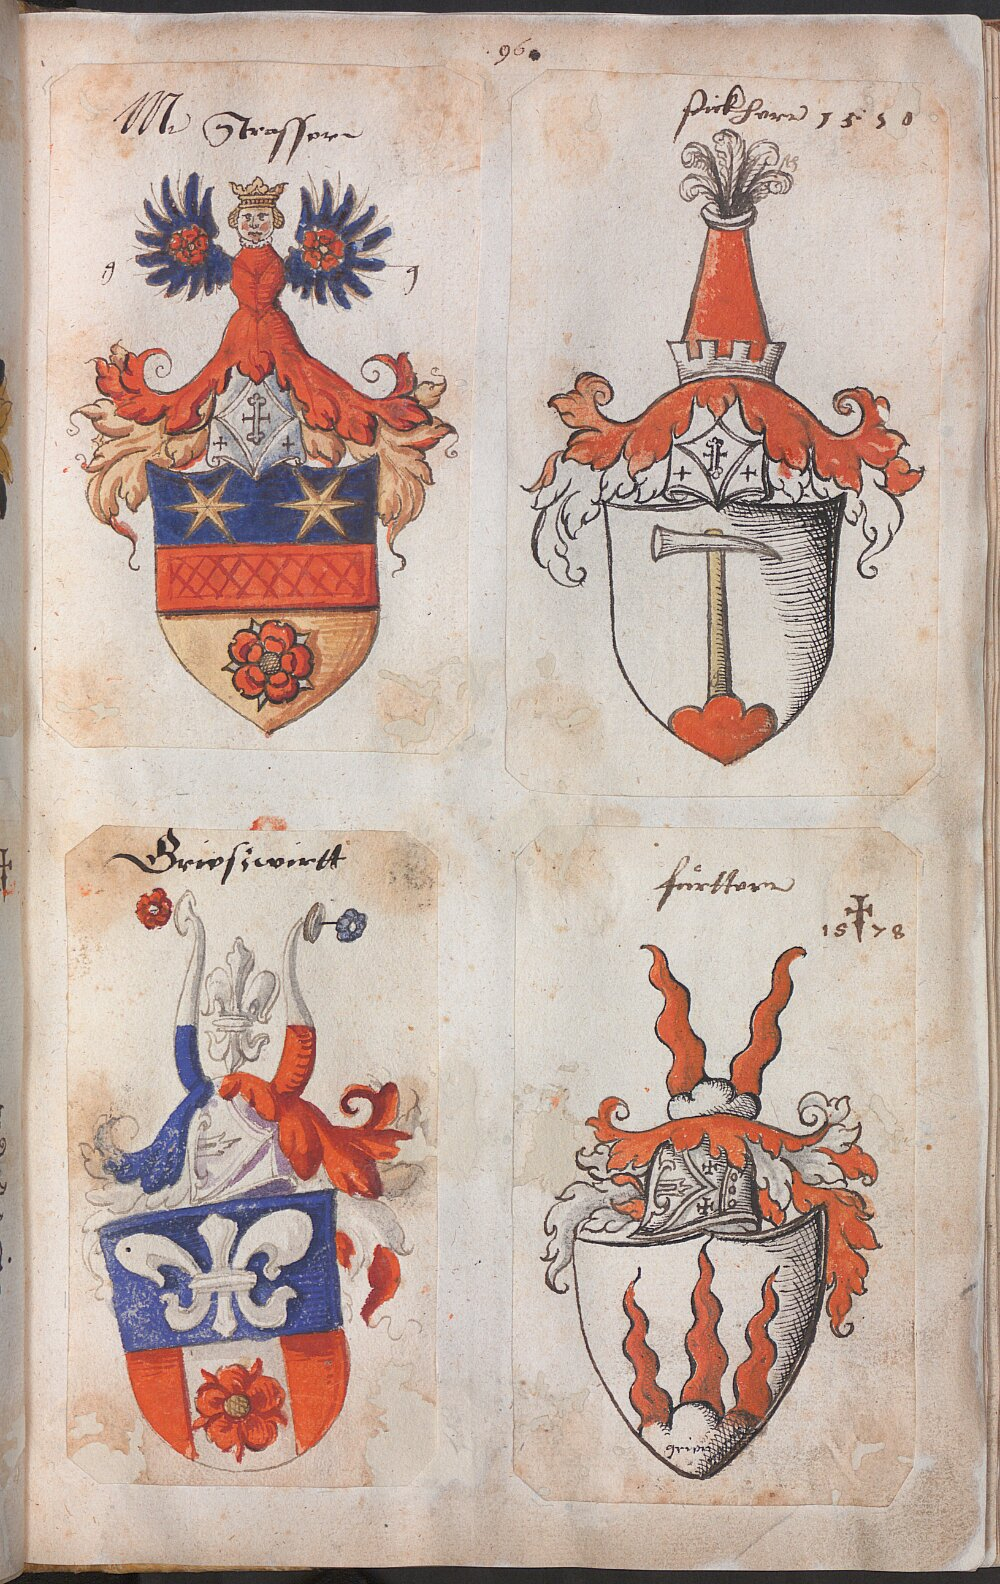 96.
M Strasser
g g
Pickhorn 1550
Griesswirtt
fürttern
1578
grien